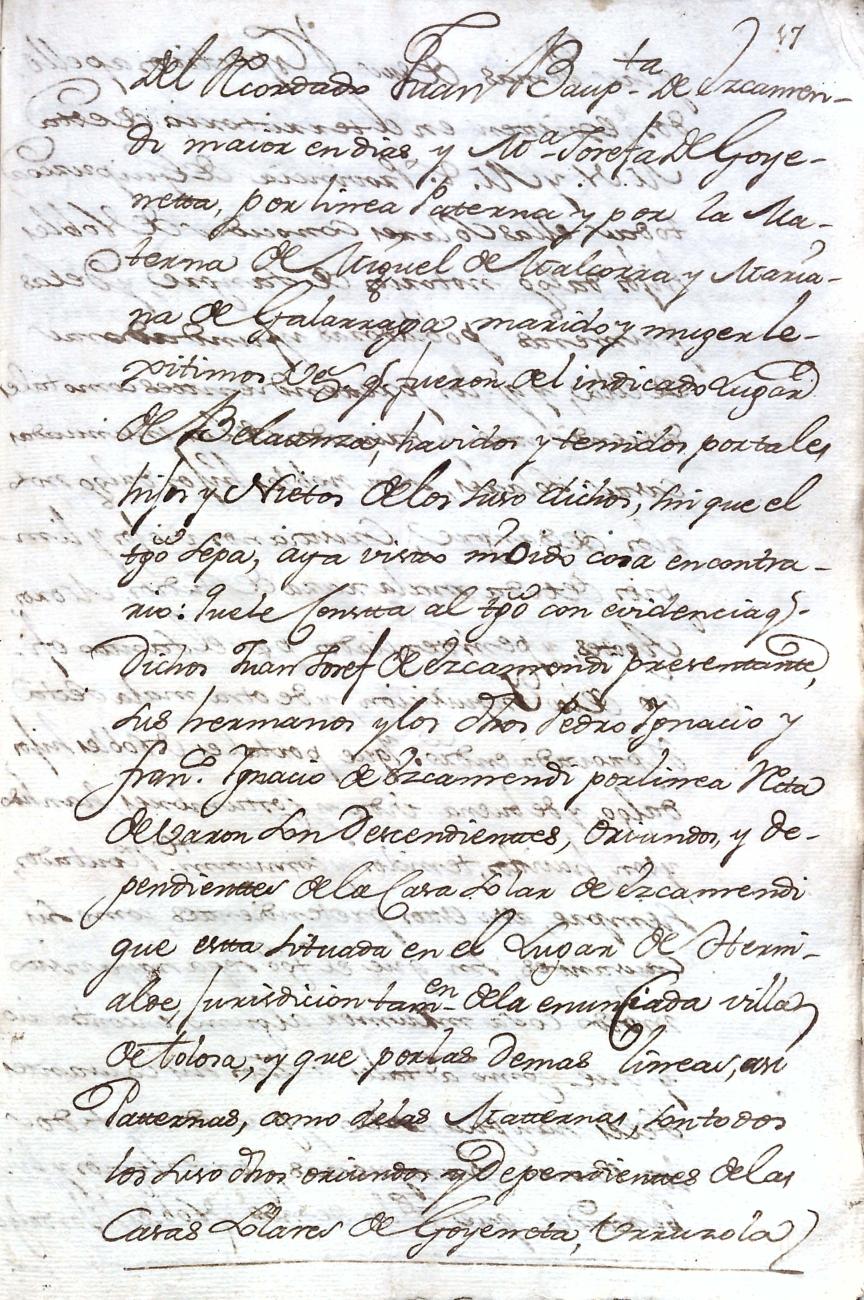 17
del Rcordado Juan Baup.ta de Yzcamen-
di maior en dias, y M.a Josefa De Goye-
netta, por linea Paterna, y por la Ma-
terna de Miguel de Malcorra y Maria-
na de Galarraga, marido y muger le-
xitimos Vez.s q.e fueron del indicado Lugar
de Belaunza, havidos y tenidos por tales
hijos y Nietos de los suso dichos, sin que el
tgô sepa, aya visto ni oido cosa en contra-
rio: Que le Constta al tgô con evidencia q.e
Dichos Juan Josef de Yzcamendi presentante,
sus hermanos y los dhos Pedro Ygnacio y
Fran.co Ygnacio de Yzcamendi por linea Recta
de Varon son Descendienttes, oriundos, y de-
pendienttes de la Casa Solar de Yzcamendi
que estta situada en el Lugar de Herni-
alde, Jurisdicion tam.en de la enunciada villa
de tolosa, y que por las Demas lineas, asi
Patternas, como de las Matternas, son todos
los suso dhos oriundos y Dependienttes de las
Casas Solares de Goyeneta, Urruzola